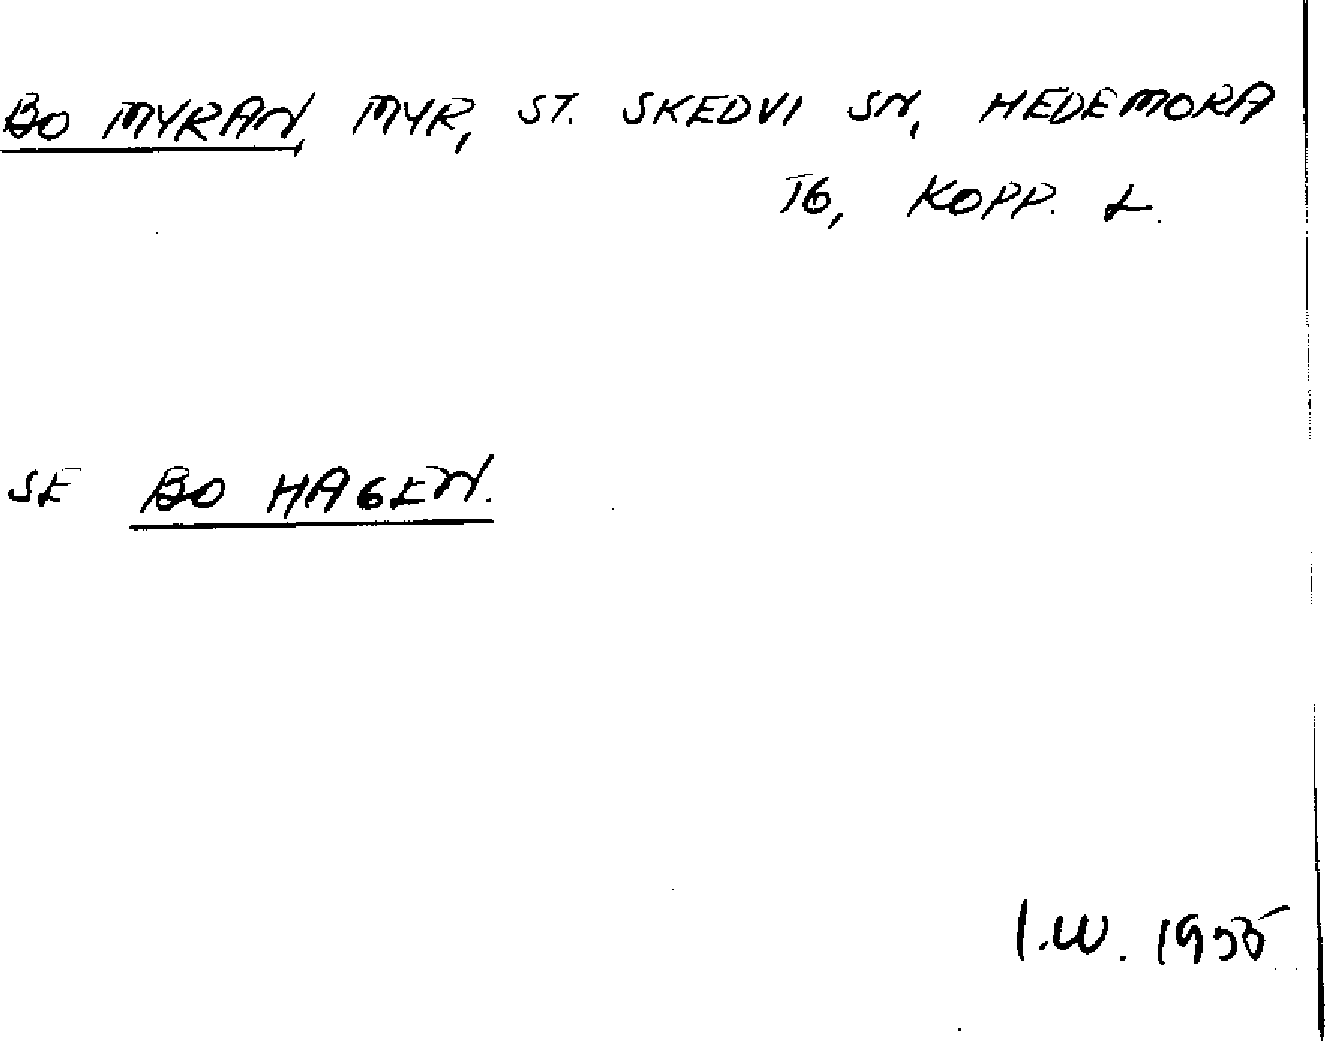 BO MYRAN, MYR, ST. SKEDVI SN, HEDEMORA
TG, KOPP. L.
SE BO HAGEN.
I.W. 1955